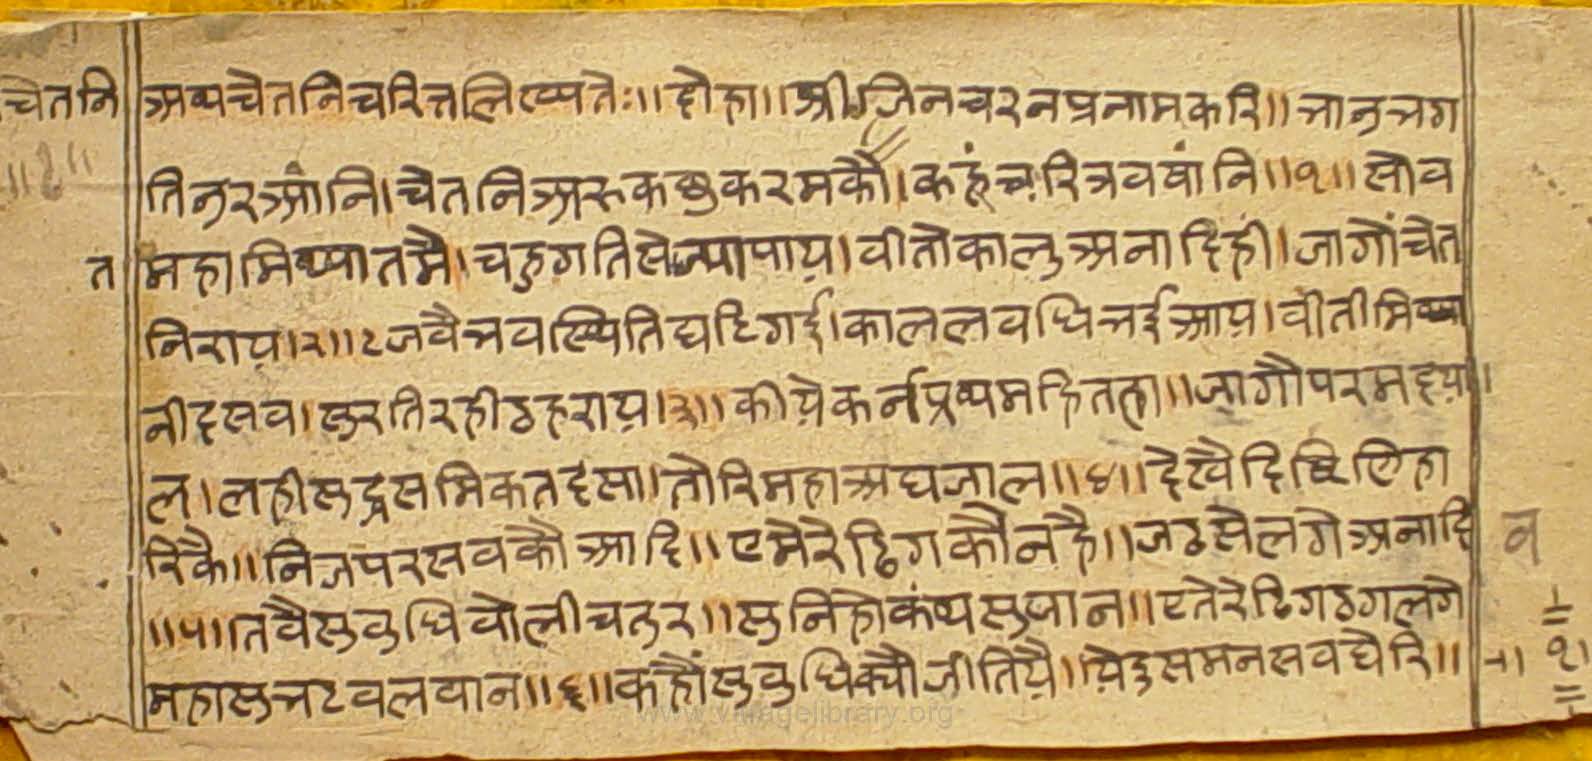 चेतनि
॥१॥
त
अथ्यचेतनिचरित्तलिख्यतेः॥दोहा॥श्रीजिनचरनप्रनामकरि॥भानुभग
तिनुरआंनि।चेतनिअरुकछुकरमकौ।कहूंचरित्रवषांनि॥१॥सोव
महामिथ्यातमै।चहुगतिसेज्यापाय।वीतोकालुअनादिही।जागौंचेत
निराय।२॥जवैभवस्थितिघटिगई।काललवधिभईआय।वीतीमिथ्या
नीदसव।सुरतिरहीठहराय।३॥कीयेकर्नप्रथ्यमहितहा॥जागौपरमदया
ल।लहीसुद्रसमिकतदसा।तोरिमहाअघजाल॥४॥देखैदिष्टिनिहा
रिकै॥निजपरसवकौआदि॥एमेरेढिगकौनहै॥जठसेलगेअनादि
॥५॥तवैसुवुधिवोलीचतुर॥सुनिहोकंथसुजान॥एतेरेढिगठगलगे
महासुभटवलवान॥६॥कहौंसुवुधिक्यौजीतियै।येदुसमनसवघेरि॥
व
१।
www.villagelibrary.org